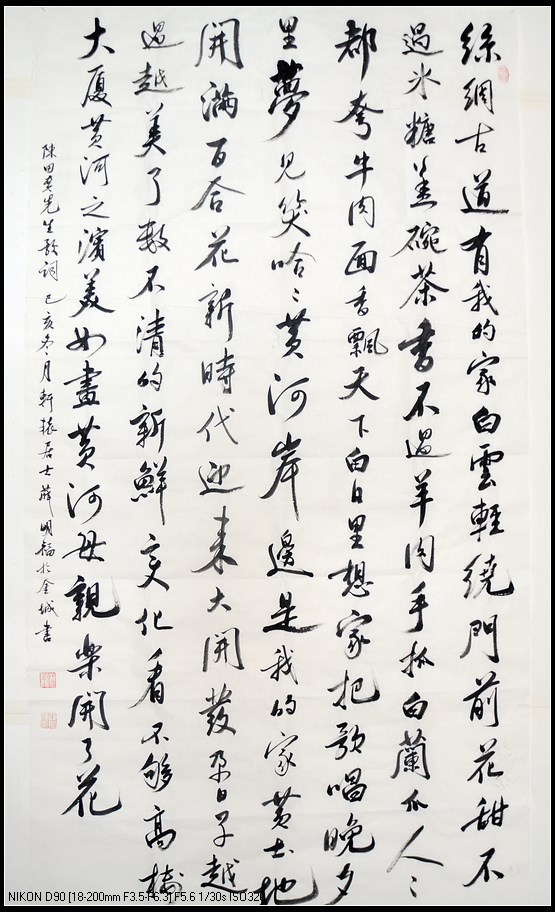 絲綢古道有我的家白雲輕繞門前花甜不
過冰糖盖碗茶香不過羊肉手抓白蘭瓜人〻
都夸牛肉面香飄天下白日里想家把歌唱晚夕
里夢見笑哈〻黄河岸邊是我的家黄土地
開滿百合花新時代迎来大開發尕日子越
過越美了數不清的新鮮变化看不够高楼
大厦黄河之濱美如畫黄河母親樂開了花
陳田貴先生歌詞己亥冬月軒辕居士薛明福於金城書
NIKON D90 [18-200mm F3.5-F6.3] F5.6 1/30s ISO32